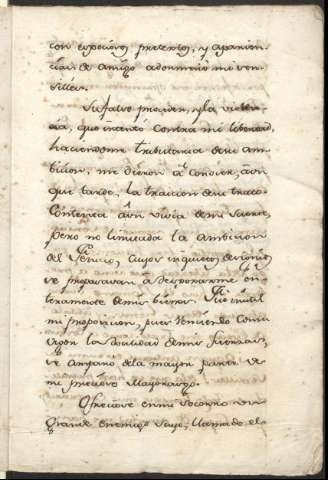 con expecioros pretextos, y aparien-
cias de Amigo adormeció mi ven-
silles.
Su falso proceder, y la violen-
cia, que intentó contra mi libertad,
haciendome tributaria de su am-
bicion, me dieron a conocer, aun
que tarde, la traicion de su trato.
Contenta aun vivia de mi suerte,
pero no limitada la ambicion
del Genio, cuyos inquietos designios
se preparavan a despojarme en-
teramente de mis bienes.
mi proposicion, pues teniendo consi-
sigo la de mis
se amparó de la mayor parte de
mi precioso Mayorazgo.
Ofreciose en mi socorro un
grande enemigo suyo, llamado el